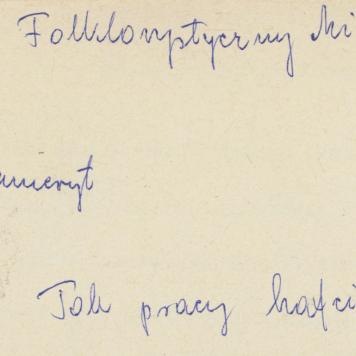 Folklorystyczny Mi
Tok pracy hafci